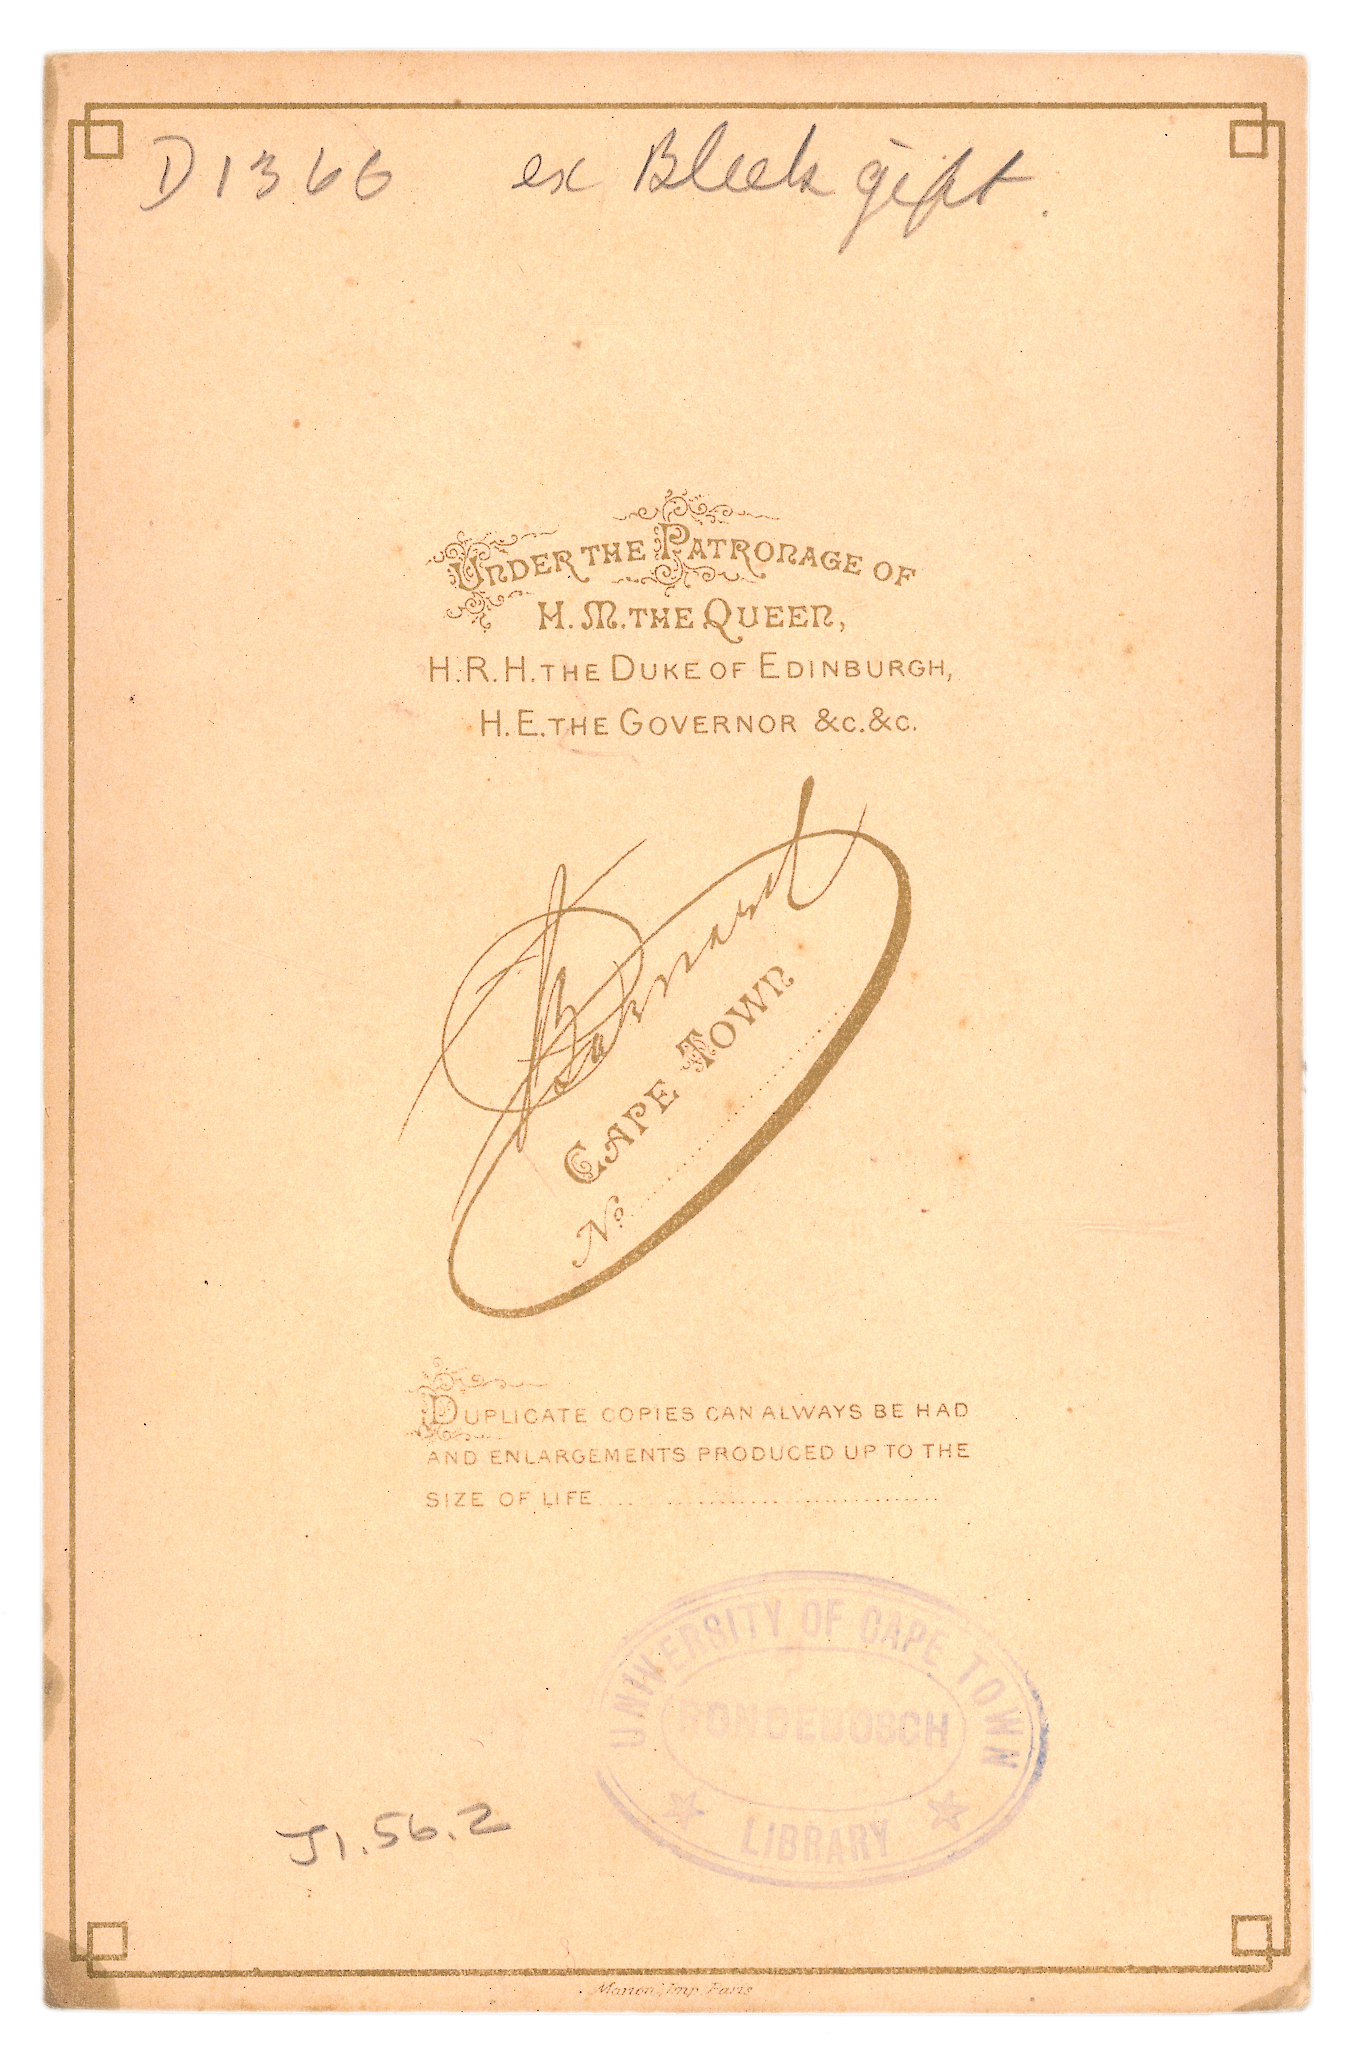 D1366 ex Bleek gift.
UNDER THE PATRONAGE OF
H. M. THE QUEEN,
H. R. H. THE DUKE OF EDINBURGH,
H. E. THE GOVERNOR &C. &C.
Barnard
CAPE TOWN
No.
DUPLICATE COPIES CAN ALWAYS BE HAD
AND ENLARGEMENTS PRODUCED UP TO THE
SIZE OF LIFE
UNIVERSITY OF CAPE TOWN
RONDEBOSCH
LIBRARY
J1.56.2
Marion, Imp. Paris